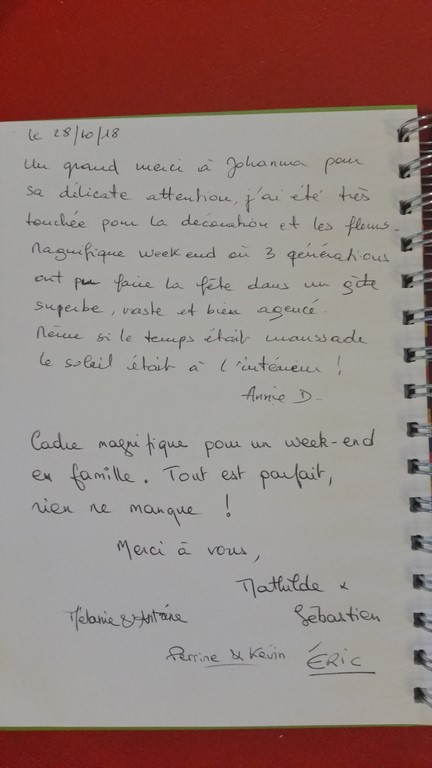 le 28/10/18
Un grand merci à Johanna pour
sa délicate attention, j'ai été très
touchée pour la décoration et les fleurs.
Magnifique week end où 3 générations
ont pu faire la fête dans un gîte
superbe, vaste et bien agencé.
Même si le temps était maussade
le soleil était à l'intérieur !
Annie D.
Cadre magnifique pour un week-end
en famille. Tout est parfait,
rien ne manque !
Merci à vous,
Mathilde &
Mélanie & Antoine Sébastien
Perrine & Kévin ÉRIC